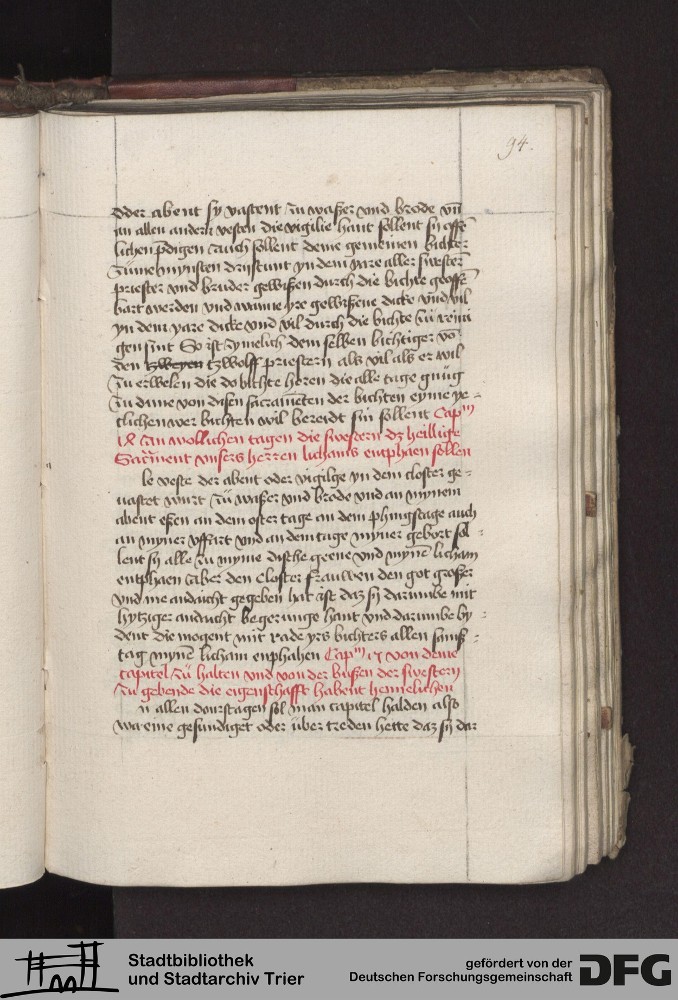 94.
oder abent sy vastent zu waßer vnd brode vn̄
in allen andern vesten die vigilie hant sollent sy offē
lichen p̄digen auch sollent deme gemeinen bichter
zume mynsten dristunt yn dem yare aller swester
priester vnd bruder gewißen durch die bichte geoffē
bart werden vnd wanne yre gewißene dicke vnd vil
yn dem yare dicke vnd vil durch die bichte zu reini
gen sint So ist zymelich dem selben bichtiger vō
den tzweyen tzwolff priestern als vil als er wil
zu erwelen die do bichte horen die alle tage gnug
zu dune von disen sacramēten der bichten eyme ye-
clichen wer bichten wil bereidt sin sollent Cap᷃m
ix an wollichen tagen die swestern dz heillige
Sacrment vnsers herren lichams entphaen sollen
le veste der abent oder vigilge yn dem closter ge-
uastet wurt zu waßer vnd brode vnd an mynem
abent eßen an dem oster tage an dem phingstage auch
an myner vffart vnd an dem tage myner gebort sol-
lent sy alle zu myme dische geene vnd mynē licham
entphaen aber den closter frauwen den got großer
vnd me andacht gegeben hat ist daz sy darumbe mit
hytziger andacht begerunge hant vnd darumbe by-
dent die mogent mit rade yrs bichters allen samß-
tag mynē licham enphahen Cap᷃m x von deme
capitel zu halten vnd von der bußen der swestern
zu gebende die eigenschafft habent heimelichen
n allen donrstagen sol man capitel halden also
wa eine gesundiget oder über treden hette daz sy dar
Stadtbibliothek
und Stadtarchiv Trier
gefördert von der
Deutschen Forschungsgemeinschaft
DFG